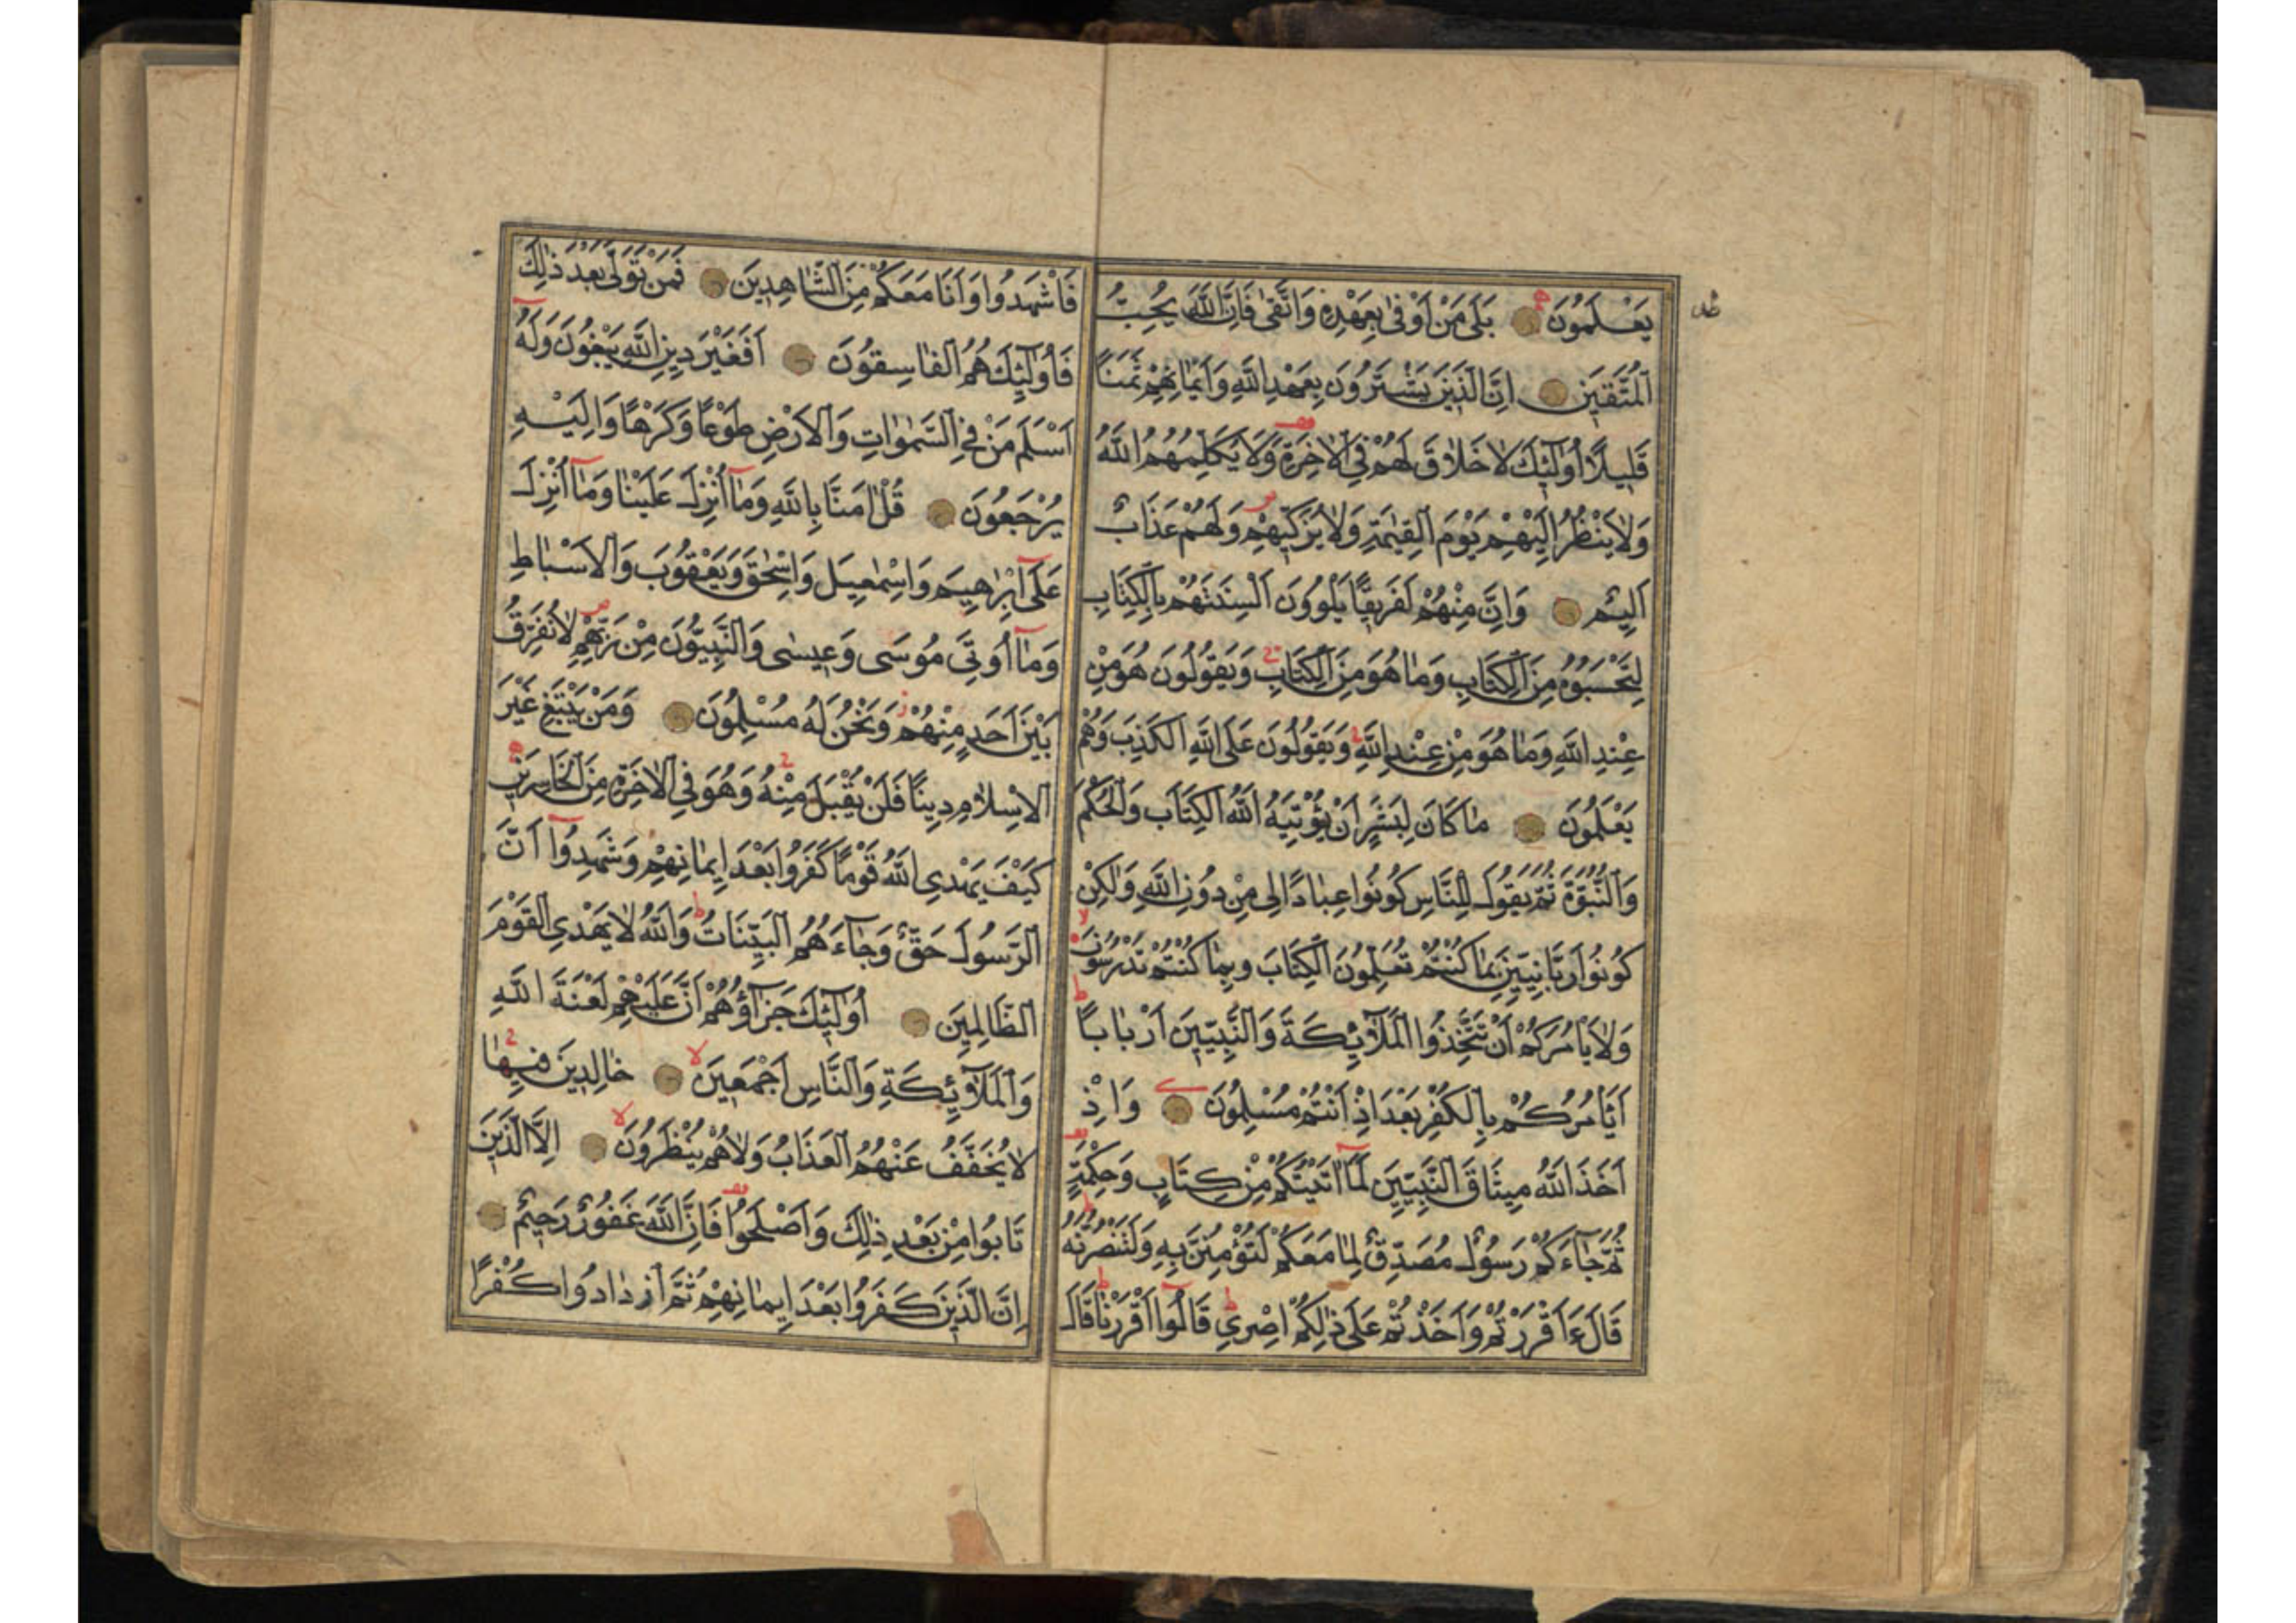 يَعْلَمُونَ بَلَى مَنْ اَوْفٰى بِعَهْدِهِ وَاتَّقٰى فَاِنَّ اللّٰهَ يُحِبُّ
الْمُتَّقِينَ اِنَّ الَّذِينَ يَشْتَرُونَ بِعَهْدِ اللّٰهِ وَاَيْمَانِهِمْ ثَمَنًا
قَلِيلًا اُولٰئِكَ لَا خَلَاقَ لَهُمْ فِي الْاٰخِرَةِ وَلَا يُكَلِّمُهُمُ اللّٰهُ
وَلَا يَنْظُرُ اِلَيْهِمْ يَوْمَ الْقِيٰمَةِ وَلَا يُزَكِّيهِمْ وَلَهُمْ عَذَابٌ
اَلِيمٌ وَاِنَّ مِنْهُمْ لَفَرِيقًا يَلْوُونَ اَلْسِنَتَهُمْ بِالْكِتَابِ
لِتَحْسَبُوهُ مِنَ الْكِتَابِ وَمَا هُوَ مِنَ الْكِتَابِ وَيَقُولُونَ هُوَ مِنْ
عِنْدِ اللّٰهِ وَمَا هُوَ مِنْ عِنْدِ اللّٰهِ وَيَقُولُونَ عَلَى اللّٰهِ الْكَذِبَ وَهُمْ
يَعْلَمُونَ مَا كَانَ لِبَشَرٍ اَنْ يُؤْتِيَهُ اللّٰهُ الْكِتَابَ وَالْحُكْمَ
وَالنُّبُوَّةَ ثُمَّ يَقُولَ لِلنَّاسِ كُونُوا عِبَادًا لِى مِنْ دُونِ اللّٰهِ وَلٰكِنْ
كُونُوا رَبَّانِيِّينَ بِمَا كُنْتُمْ تُعَلِّمُونَ الْكِتَابَ وَبِمَا كُنْتُمْ تَدْرُسُونَ
وَلَا يَاْمُرَكُمْ اَنْ تَتَّخِذُوا الْمَلٰٓئِكَةَ وَالنَّبِيِّينَ اَرْبَابًا
اَيَاْمُرُكُمْ بِالْكُفْرِ بَعْدَ اِذْ اَنْتُمْ مُسْلِمُونَ وَاِذْ
اَخَذَ اللّٰهُ مِيثَاقَ النَّبِيِّينَ لَمَا اٰتَيْتُكُمْ مِنْ كِتَابٍ وَحِكْمَةٍ
ثُمَّ جَاءَكُمْ رَسُولٌ مُصَدِّقٌ لِمَا مَعَكُمْ لَتُؤْمِنُنَّ بِهِ وَلَتَنْصُرُنَّهُ
قَالَ ءَاَقْرَرْتُمْ وَاَخَذْتُمْ عَلَى ذٰلِكُمْ اِصْرِي قَالُوا اَقْرَرْنَا قَالَ
فَاشْهَدُوا وَاَنَا مَعَكُمْ مِنَ الشَّاهِدِينَ فَمَنْ تَوَلَّى بَعْدَ ذٰلِكَ
فَاُولٰئِكَ هُمُ الْفَاسِقُونَ اَفَغَيْرَ دِينِ اللّٰهِ يَبْغُونَ وَلَهُ
اَسْلَمَ مَنْ فِي السَّمٰوَاتِ وَالْاَرْضِ طَوْعًا وَكَرْهًا وَاِلَيْهِ
يُرْجَعُونَ قُلْ اٰمَنَّا بِاللّٰهِ وَمَا اُنْزِلَ عَلَيْنَا وَمَا اُنْزِلَ
عَلَى اِبْرٰهِيمَ وَاِسْمٰعِيلَ وَاِسْحٰقَ وَيَعْقُوبَ وَالْاَسْبَاطِ
وَمَا اُوتِىَ مُوسَى وَعِيسٰى وَالنَّبِيُّونَ مِنْ رَبِّهِمْ لَا نُفَرِّقُ
بَيْنَ اَحَدٍ مِنْهُمْ وَنَحْنُ لَهُ مُسْلِمُونَ وَمَنْ يَبْتَغِ غَيْرَ
الْاِسْلَامِ دِينًا فَلَنْ يُقْبَلَ مِنْهُ وَهُوَ فِي الْاٰخِرَةِ مِنَ الْخَاسِرِينَ
كَيْفَ يَهْدِي اللّٰهُ قَوْمًا كَفَرُوا بَعْدَ اِيمَانِهِمْ وَشَهِدُوا اَنَّ
الرَّسُولَ حَقٌّ وَجَاءَهُمُ الْبَيِّنَاتُ وَاللّٰهُ لَا يَهْدِي الْقَوْمَ
الظَّالِمِينَ اُولٰئِكَ جَزَاؤُهُمْ اَنَّ عَلَيْهِمْ لَعْنَةَ اللّٰهِ
وَالْمَلٰٓئِكَةِ وَالنَّاسِ اَجْمَعِينَ خَالِدِينَ فِيهَا
لَا يُخَفَّفُ عَنْهُمُ الْعَذَابُ وَلَا هُمْ يُنْظَرُونَ اِلَّا الَّذِينَ
تَابُوا مِنْ بَعْدِ ذٰلِكَ وَاَصْلَحُوا فَاِنَّ اللّٰهَ غَفُورٌ رَحِيمٌ
اِنَّ الَّذِينَ كَفَرُوا بَعْدَ اِيمَانِهِمْ ثُمَّ ازْدَادُوا كُفْرًا